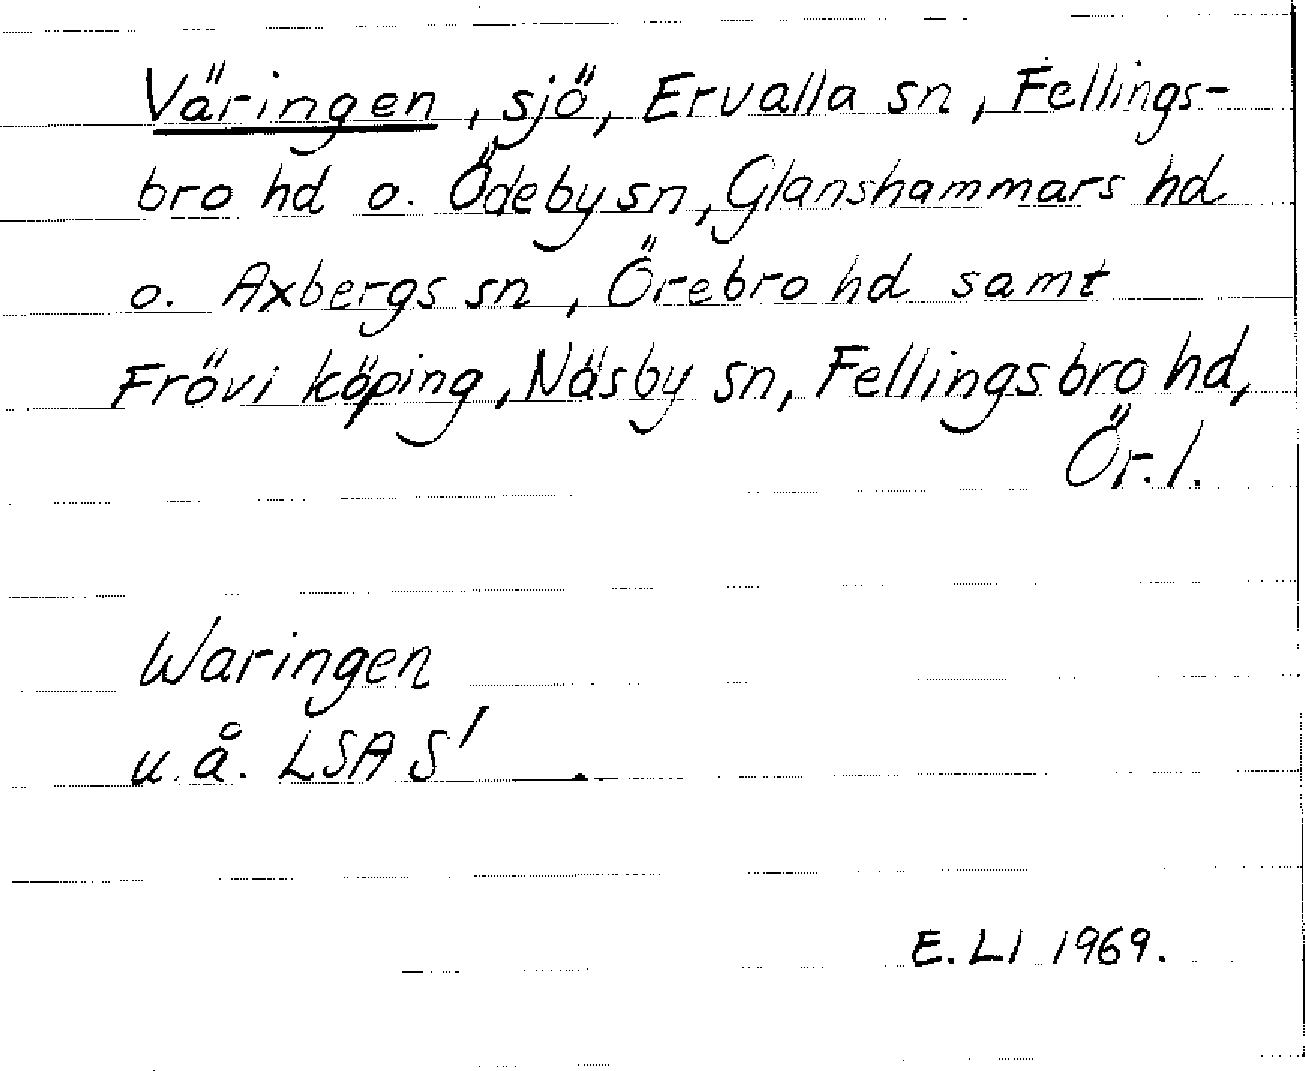 Väringen, sjö, Ervalla sn, Fellings-
bro hd o. Ödeby sn, Glanshammars hd
o. Axbergs sn, Örebro hd samt
Frövi köping, Näsby sn, Fellingsbro hd,
Ör. l.
Waringen
u. å. LSA S'
E. LI 1969.